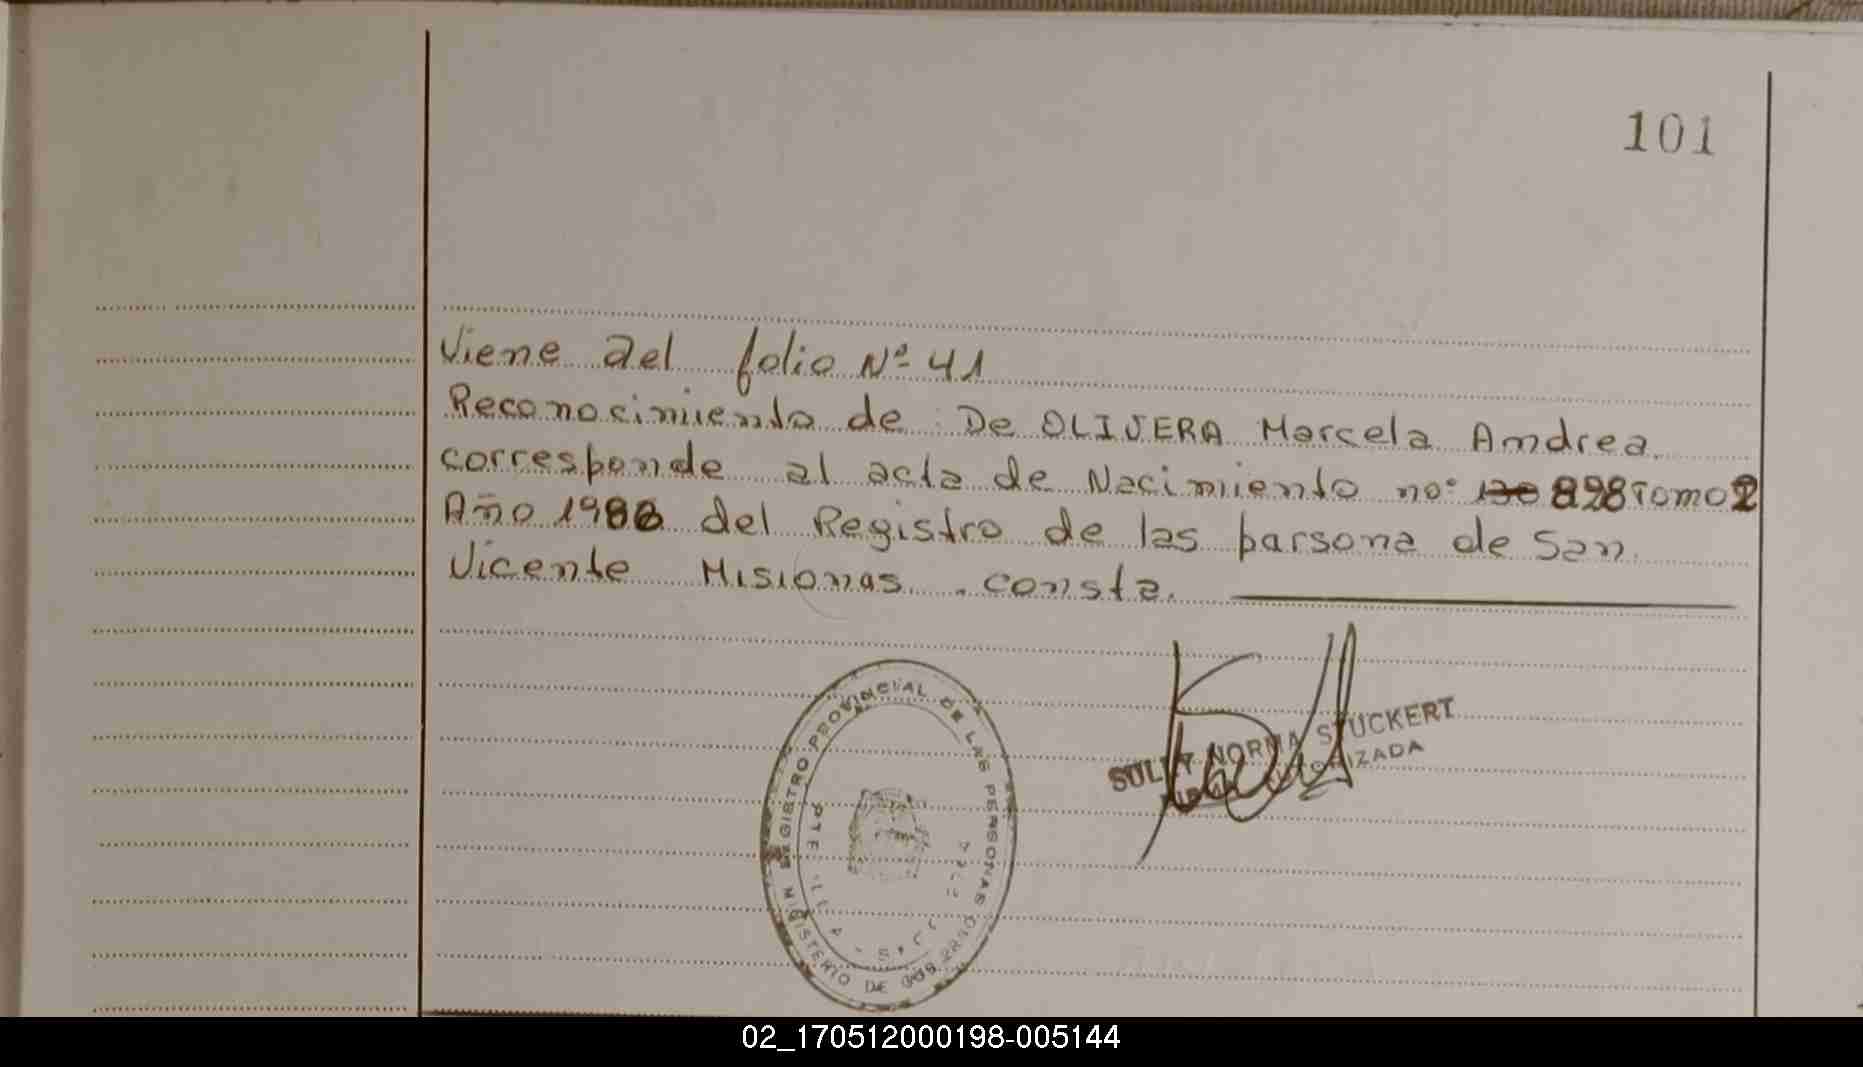 101
Viene del folio Nº 41
Reconocimiento de De OLIVERA Marcela Andrea
corresponde al acta de Nacimiento no: 898 Tomo 2
Año 1988 del Registro de las parsona de San
Vicente Misionas. consta.
REGISTRO PROVINCIAL DE LAS PERSONAS
MINISTERIO DE
NORMA STUCKERT
02_170512000198-005144